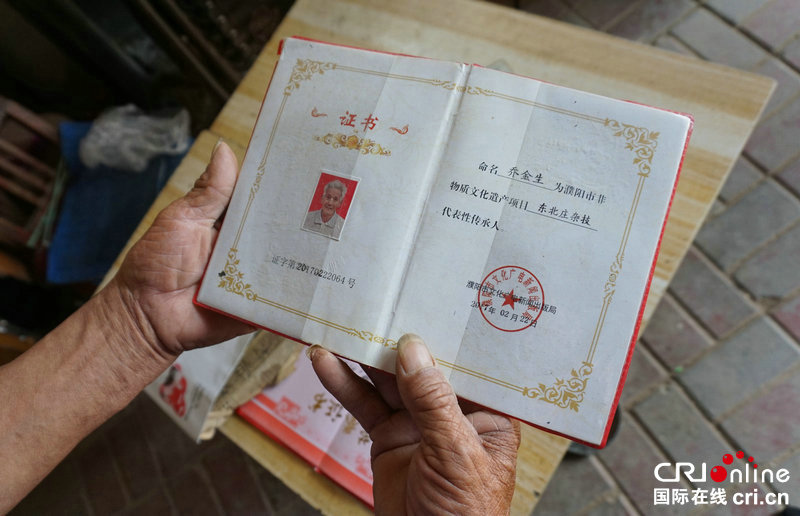 证书
证字第20170222064号
命名 乔金生 为濮阳市非
物质文化遗产项目 东北庄杂技
代表性传承人
濮阳市文化广电新闻出版局
2017年02月22日
证书
CRI Online
国际在线 cri.cn